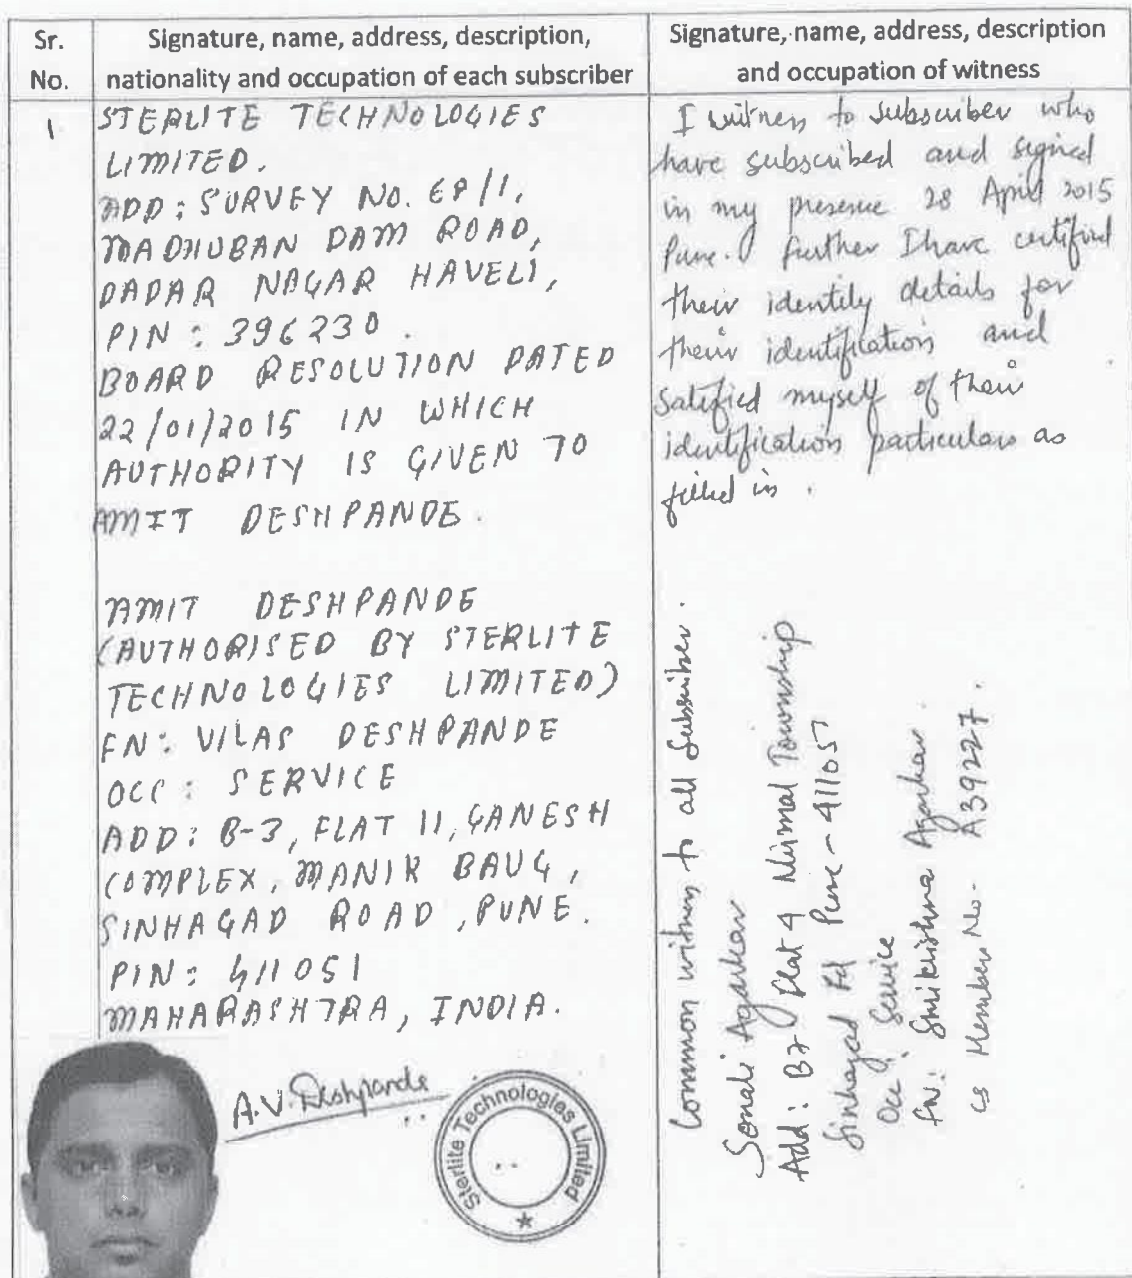 Sr.
No.
Signature, name, address, description,
nationality and occupation of each subscriber
Signature, name, address, description
and occupation of witness
1
STERLITE TECHNOLOGIES
LIMITED.
ADD: SURVEY NO. 68/1,
MADHUBAN DAM ROAD,
DADAR NAGAR HAVELI,
PIN: 396230.
BOARD RESOLUTION DATED
22/01/2015 IN WHICH
AUTHORITY IS GIVEN TO
AMIT DESHPANDE.
AMIT DESHPANDE
(AUTHORISED BY STERLITE
TECHNOLOGIES LIMITED)
FN: VILAS DESHPANDE
OCC: SERVICE
ADD: B-3, FLAT 11, GANESH
COMPLEX, MANIK BAUG,
SINHAGAD ROAD, PUNE.
PIN: 411051
MAHARASHTRA, INDIA.
A.V. Deshpande
Sterlite Technologies Limited
I witness to subscriber who
have subscribed and signed
in my presence 28 April 2015
Pune. further I have certified
their identity details for
their identification and
satisfied myself of their
identification particulars as
filled in.
Common witness to all Subscriber.
Sonali Agarkar
Add: B7 Flat 4 Nirmal Township
Sinhagad Rd Pune - 411051
Occ: Service
FN: Shrikrishna Agarkar.
CS Member No. A39227.